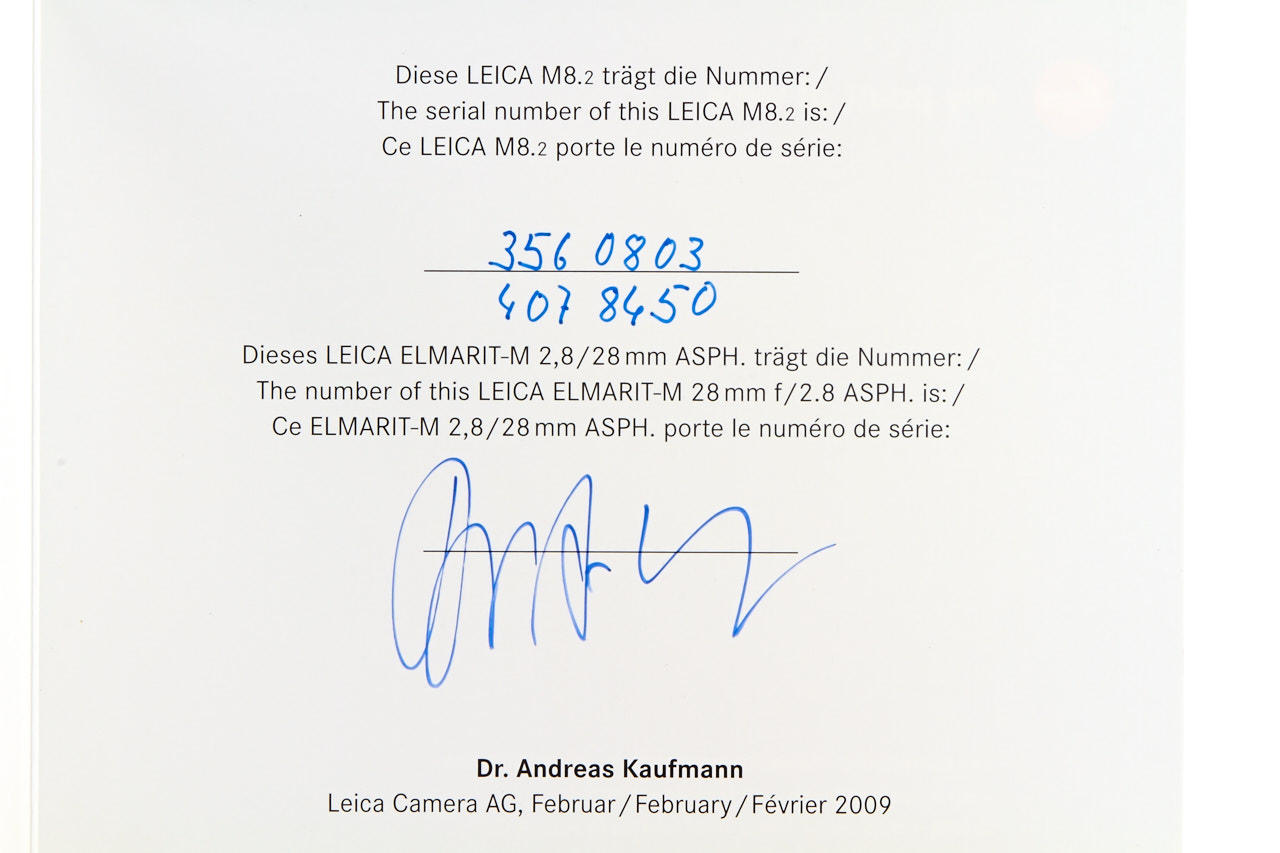 Diese LEICA M8.2 trägt die Nummer: /
The serial number of this LEICA M8.2 is: /
Ce LEICA M8.2 porte le numéro de série:
356 0803
407 8450
Dieses LEICA ELMARIT-M 2,8/28 mm ASPH. trägt die Nummer: /
The number of this LEICA ELMARIT-M 28 mm f/2.8 ASPH. is: /
Ce ELMARIT-M 2,8/28 mm ASPH. porte le numéro de série:
Dr. Andreas Kaufmann
Leica Camera AG, Februar / February / Février 2009